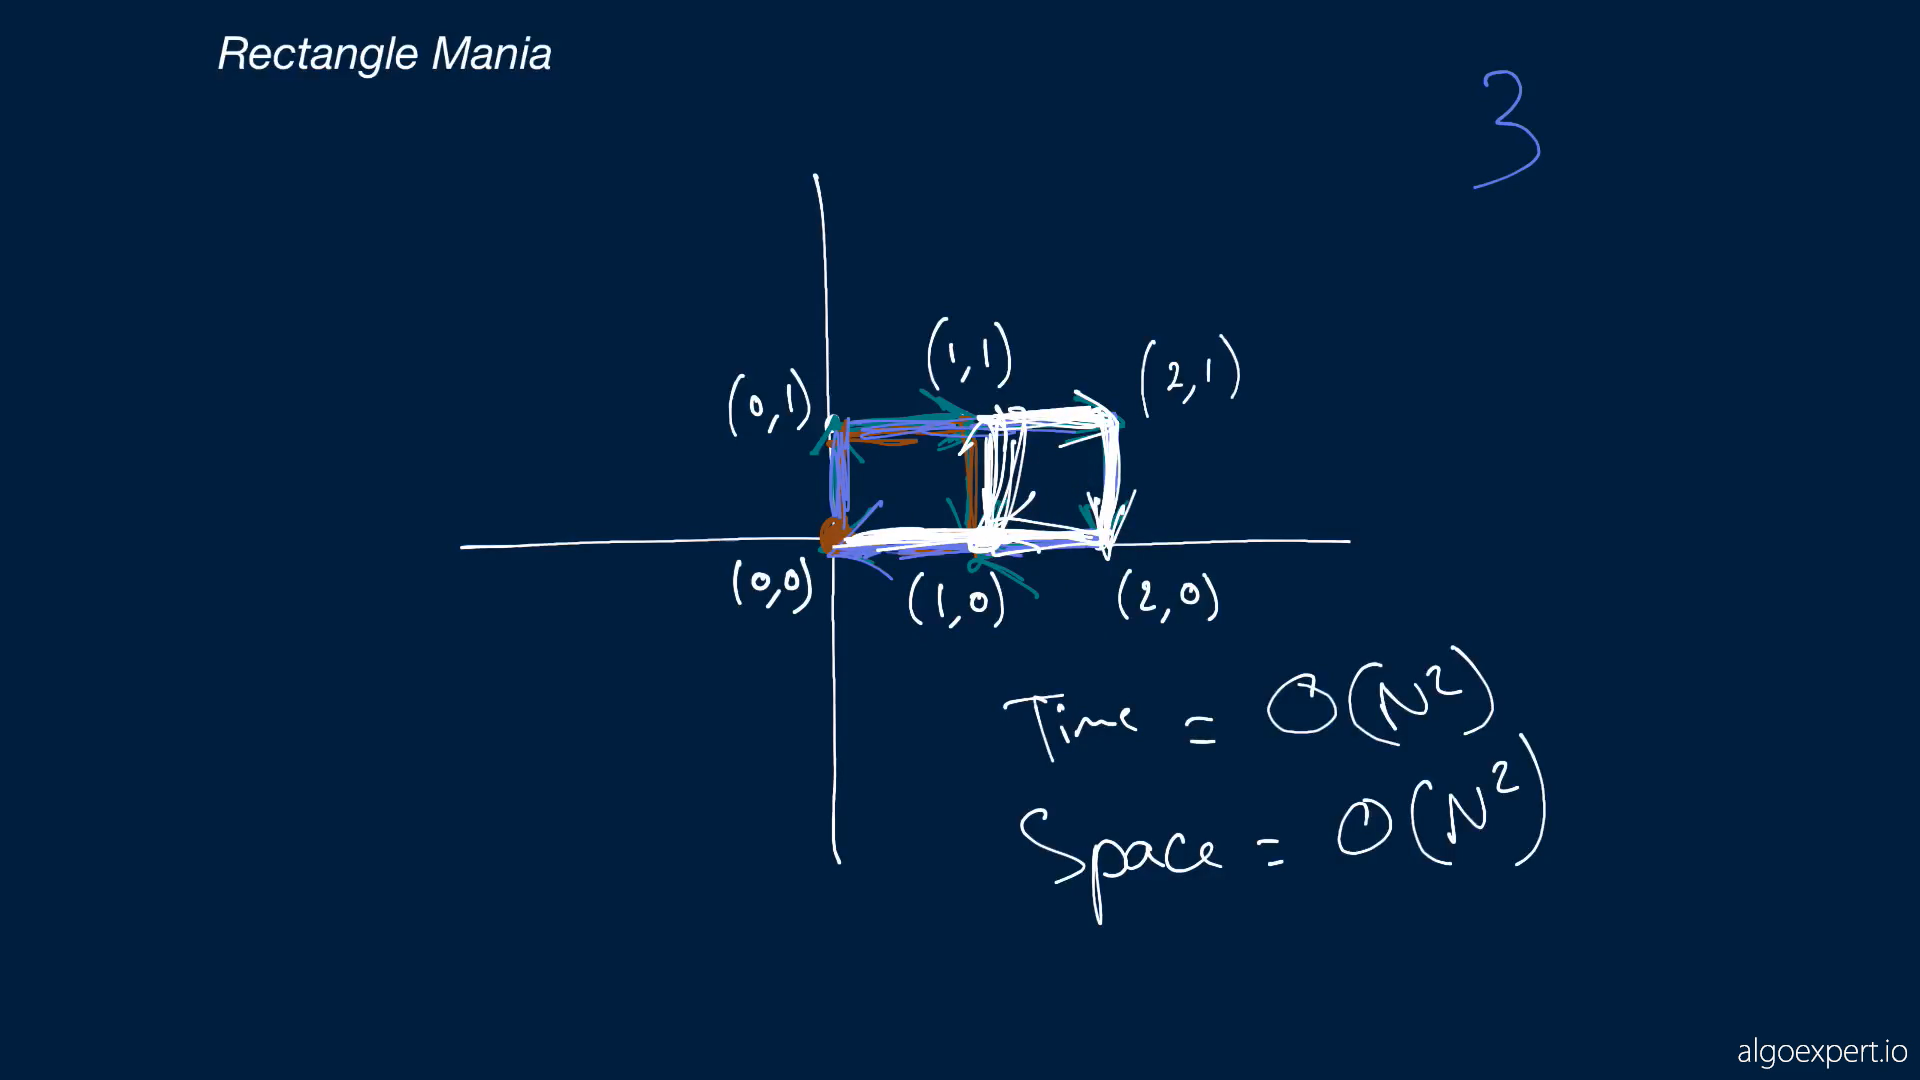 Rectangle Mania
3
(0,1) (1,1) (2,1)
(0,0) (1,0) (2,0)
Time = O(N²)
Space = O(N²)
algoexpert.io